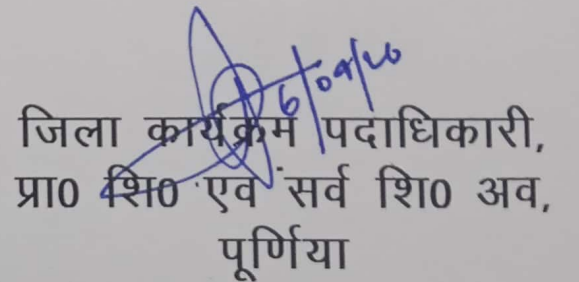 6/04/20
जिला कार्यक्रम पदाधिकारी,
प्रा0 शि0 एवं सर्व शि0 अव,
पूर्णिया